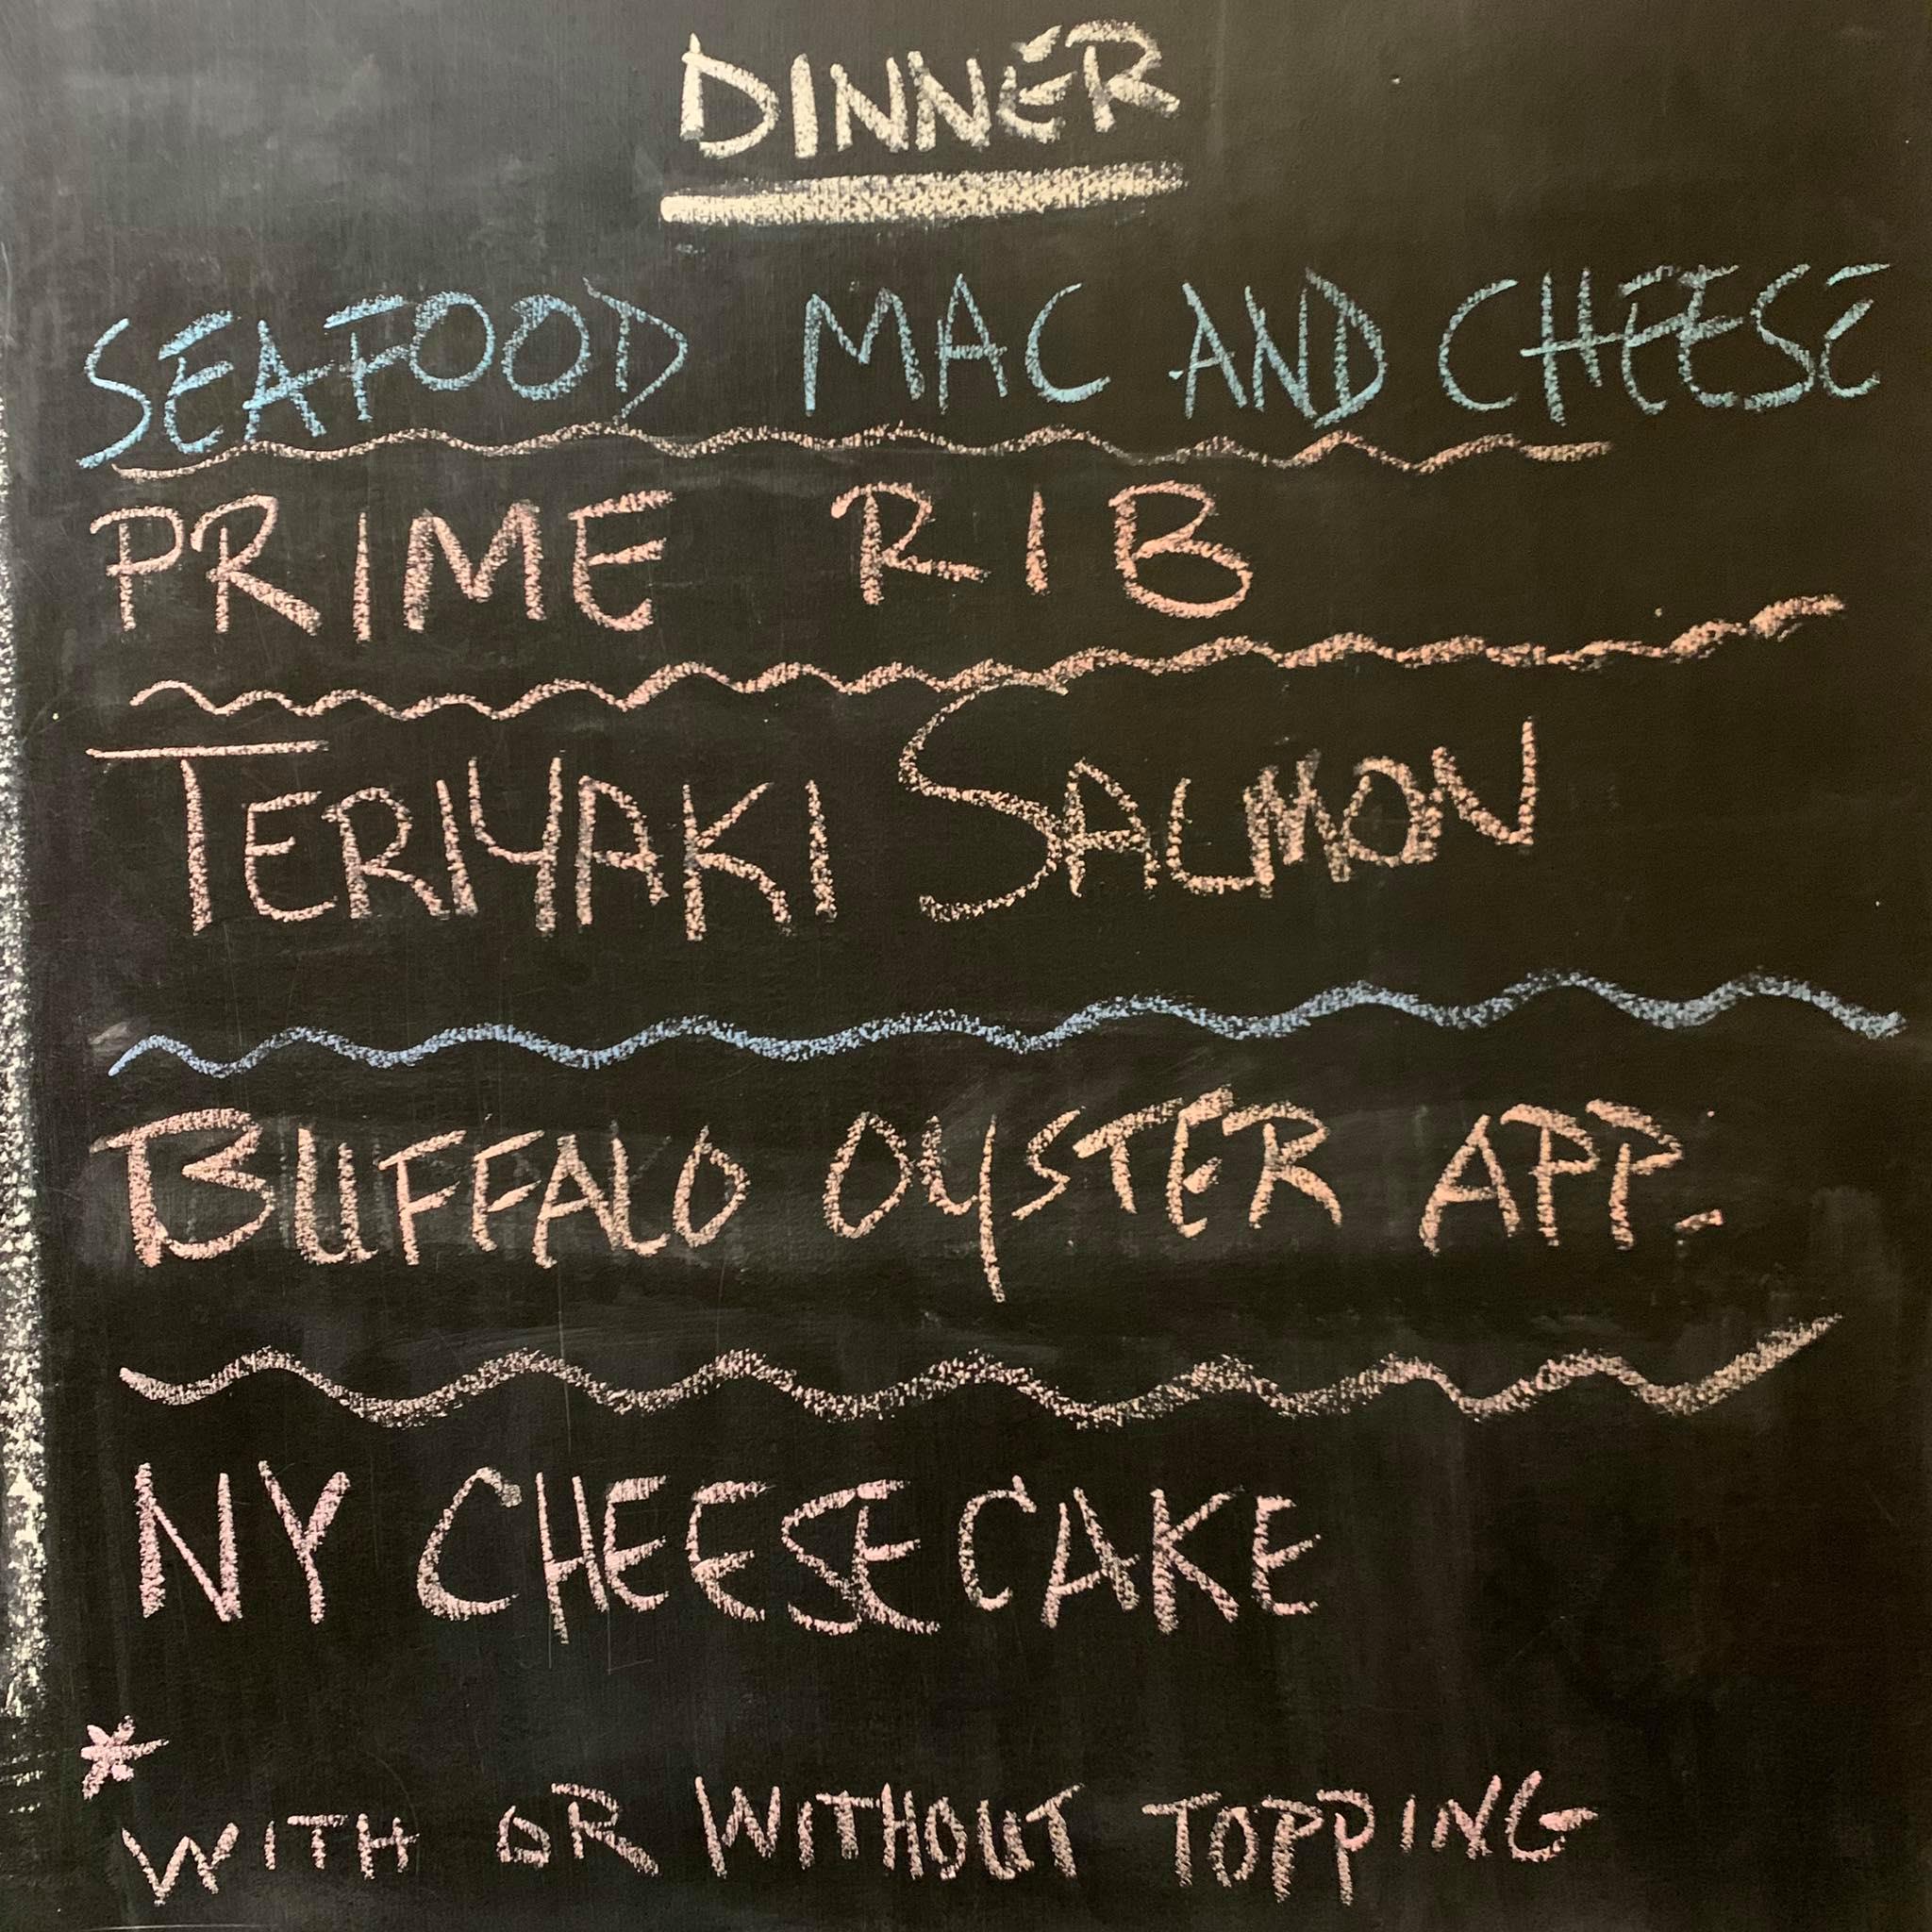 DINNER
SEAFOOD MAC AND CHEESE
PRIME RIB
TERIYAKI SALMON
BUFFALO OYSTER APP.
NY CHEESECAKE
*
WITH OR WITHOUT TOPPING